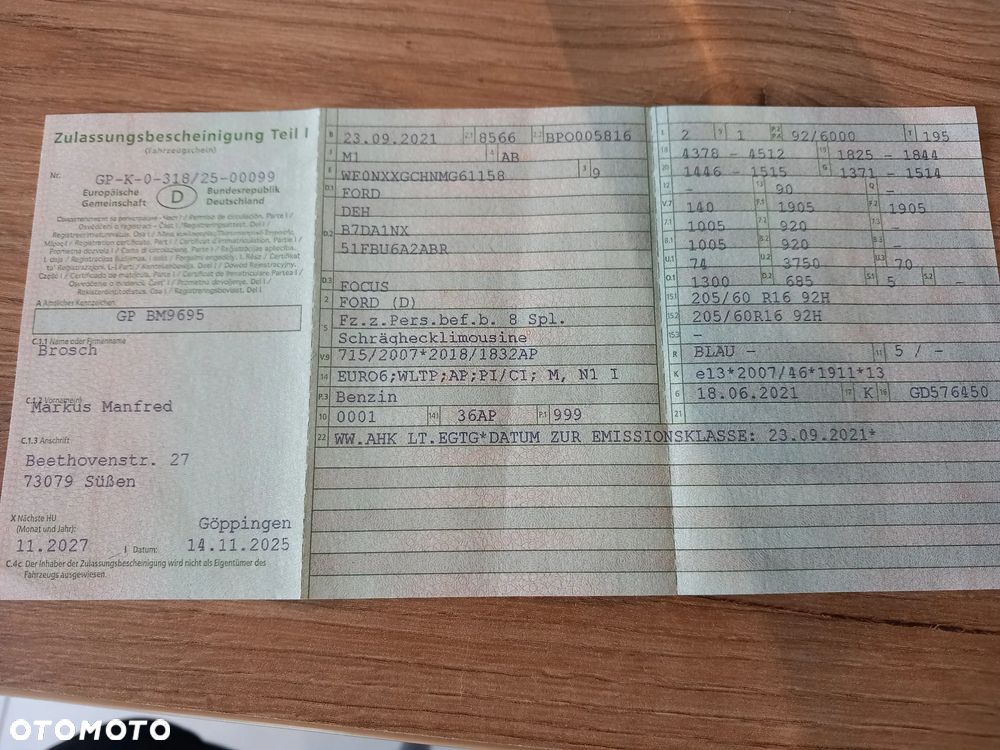 Zulassungsbescheinigung Teil I
(Fahrzeugschein)
Nr. GP-K-0-318/25-00099
Europäische Gemeinschaft D Bundesrepublik Deutschland
A Amtliches Kennzeichen
GP BM9695
C.1.1 Name oder Firmenname
Brosch
C.1.2 Vorname(n)
Markus Manfred
C.1.3 Anschrift
Beethovenstr. 27
73079 Süßen
X Nächste HU
(Monat und Jahr):
Göppingen
11.2027 I Datum: 14.11.2025
C.4c Der Inhaber der Zulassungsbescheinigung wird nicht als Eigentümer des
Fahrzeugs ausgewiesen.
B 23.09.2021 2.1 8566 2.2 BPO005816
J M1 4 AB
E WF0NXXGCHNMG61158 3 9
D.1 FORD
DEH
D.2 B7DA1NX
51FBU6A2ABR
D.3 FOCUS
2 FORD (D)
5 Fz.z.Pers.bef.b. 8 Spl.
Schräghecklimousine
V.9 715/2007*2018/1832AP
14 EURO6;WLTP;AP;PI/CI; M, N1 I
P.3 Benzin
10 0001 14.1 36AP P.1 999
22 WW.AHK LT.EGTG*DATUM ZUR EMISSIONSKLASSE: 23.09.2021*
L 2 9 1 P.2 P.4 92/6000 T 195
18 4378 - 4512 19 1825 - 1844
20 1446 - 1515 G 1371 - 1514
12 - 13 90 Q -
V.7 140 F.1 1905 F.2 1905
7.1 1005 7.2 920 7.3 -
8.1 1005 8.2 920 8.3 -
U.1 74 U.2 3750 U.3 70
O.1 1300 O.2 685 S.1 5 S.2 -
15.1 205/60 R16 92H
15.2 205/60R16 92H
15.3 -
R BLAU - 11 5 / -
K e13*2007/46*1911*13
6 18.06.2021 17 K 16 GD576450
21
OTOMOTO